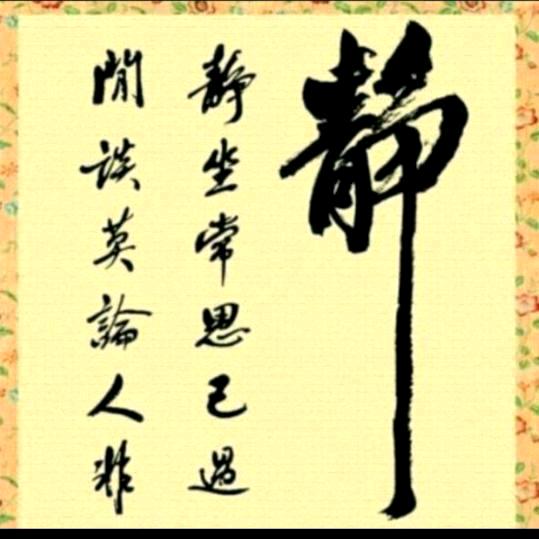 靜
靜坐常思己過
閒談莫論人非